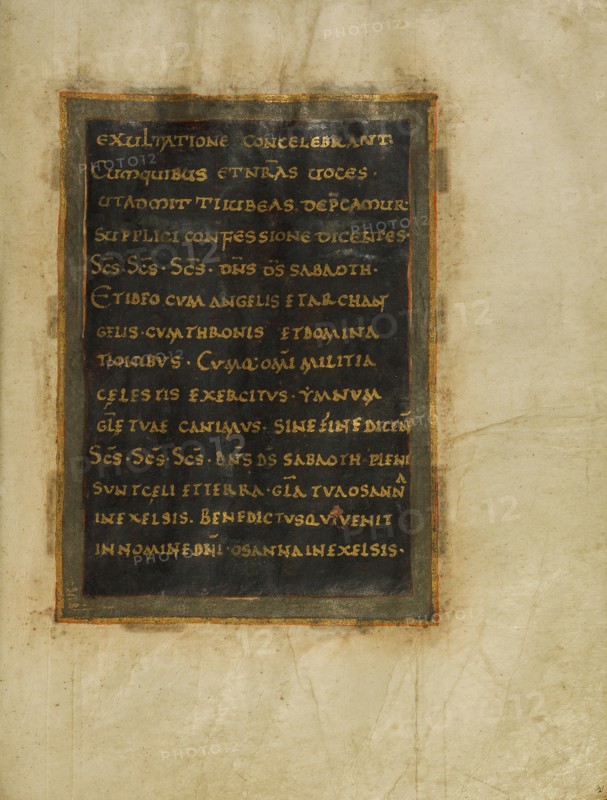 EXULTATIONE CONCELEBRANT.
CUMQUIBUS ET NR̄AS UOCES.
UTADMITTIIUBEAS. DEP̄CAMUR.
SUPPLICI CONFESSIONE DICENTES.
SC̄S · SC̄S · SC̄S · DN̄S DS̄ SABAOTH ·
ETIDEO CVM ANGELIS ETARCHAN
GELIS · CVMTHRONIS ETDOMINA
TIONIBVS · CVMQ· OMI MILITIA
CĘLESTIS EXERCITVS · YMNVM
GLĘ TVAE CANIMVS · SINE FINE DICEN̄
SC̄S · SC̄S · SC̄S · DN̄S DS̄ SABAOTH PLENI
SVNTCĘLI ETTERRA · GLĀ TVAOSANNA
INEXELSIS. BENEDICTVSQVIVENIT
INNOMINE DN̄I · OSANNAINEXELSIS ·
PHOTO12